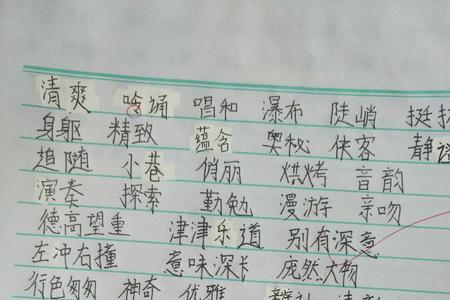 清爽 呤诵 唱和 瀑布 陡峭 挺
身躯 精致 蕴含 奥秘 侠客 静谧
追随 小巷 俏丽 烘烤 音韵
演奏 探索 勤勉 漫游 亲吻
德高望重 津津乐道 别有深意
左冲右撞 意味深长 庞然大物
行色匆匆 神奇 优雅